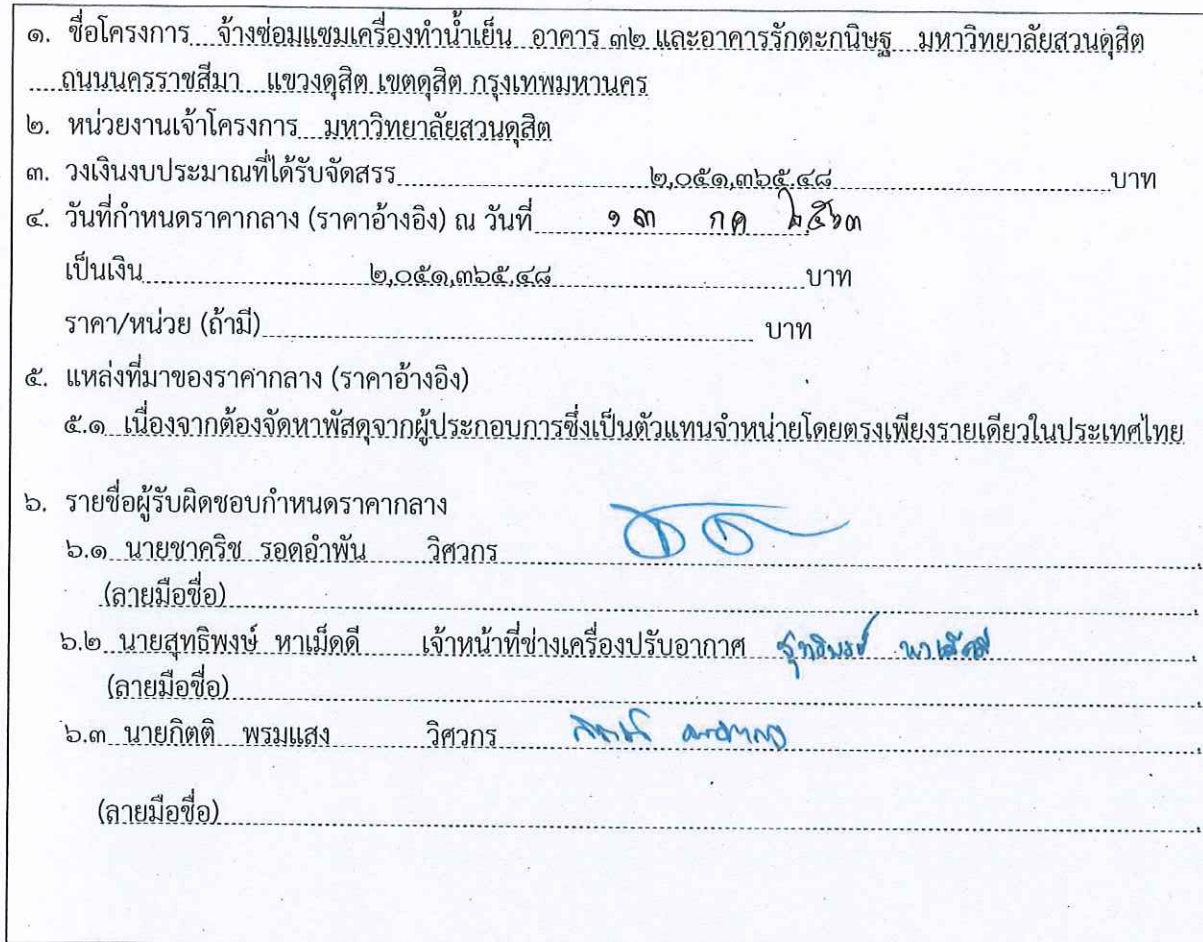 ๑. ชื่อโครงการ จ้างซ่อมแซมเครื่องทำน้ำเย็น อาคาร ๓๒ และอาคารรักตะกนิษฐ มหาวิทยาลัยสวนดุสิต
ถนนนครราชสีมา แขวงดุสิต เขตดุสิต กรุงเทพมหานคร
๒. หน่วยงานเจ้าโครงการ มหาวิทยาลัยสวนดุสิต
๓. วงเงินงบประมาณที่ได้รับจัดสรร ๒,๐๕๑,๓๖๕.๔๘ บาท
๔. วันที่กำหนดราคากลาง (ราคาอ้างอิง) ณ วันที่ ๑๓ กค ๒๕๖๓
เป็นเงิน ๒,๐๕๑,๓๖๕.๔๘ บาท
ราคา/หน่วย (ถ้ามี) บาท
๕. แหล่งที่มาของราคากลาง (ราคาอ้างอิง)
๕.๑ เนื่องจากต้องจัดหาพัสดุจากผู้ประกอบการซึ่งเป็นตัวแทนจำหน่ายโดยตรงเพียงรายเดียวในประเทศไทย
๖. รายชื่อผู้รับผิดชอบกำหนดราคากลาง
๖.๑ นายชาคริช รอดอำพัน วิศวกร
(ลายมือชื่อ)
๖.๒ นายสุทธิพงษ์ หาเม็ดดี เจ้าหน้าที่ช่างเครื่องปรับอากาศ สุทธิพงษ์ หาเม็ดดี
(ลายมือชื่อ)
๖.๓ นายกิตติ พรมแสง วิศวกร
(ลายมือชื่อ)